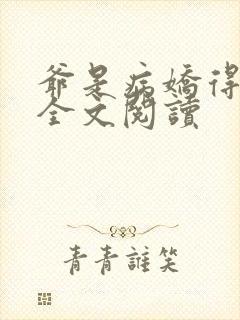 爺是病嬌得
全文閱讀
青青誰笑